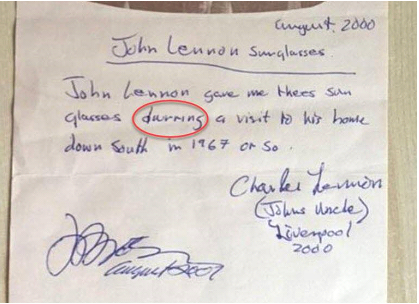 august. 2000
John Lennon sunglasses.
John Lennon gave me thees sun
glasses durring a visit to his home
down South in 1967 or so.
Charles Lennon
(Johns Uncle)
Liverpool
2000
august